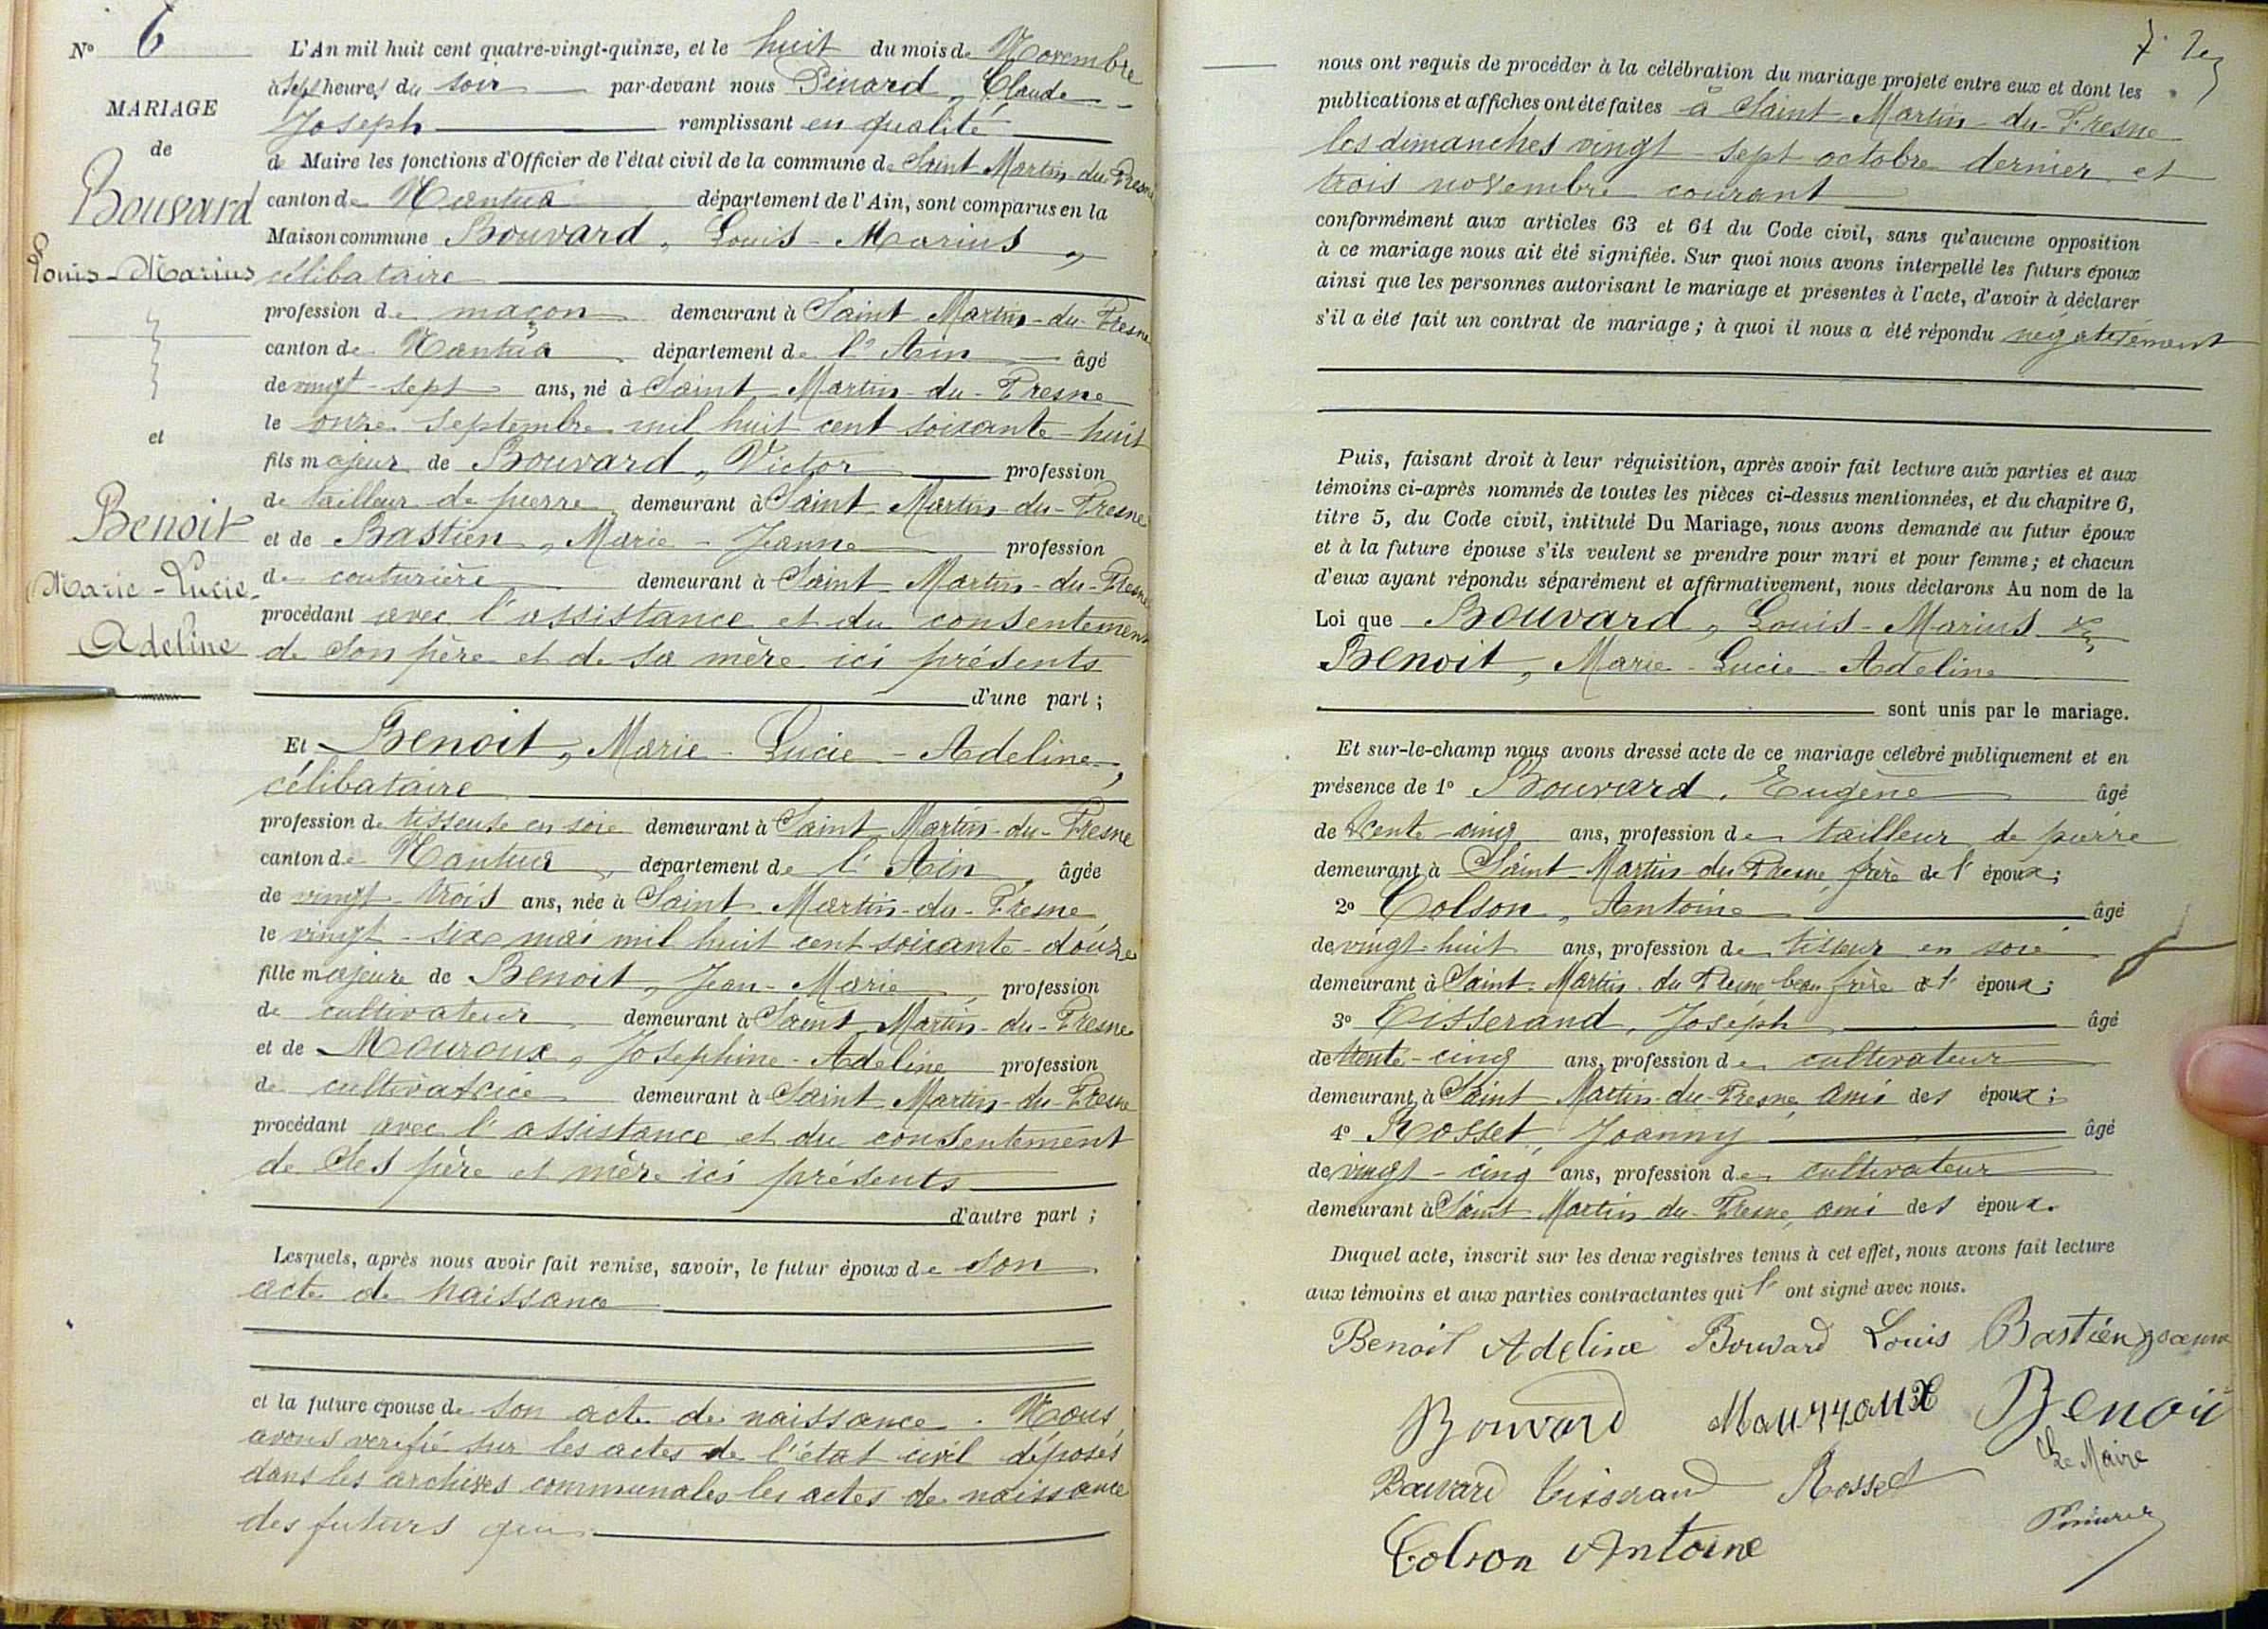 N° 6
MARIAGE
de
Bouvard
Louis-Marius
et
Benoit
Marie-Lucie-
Adeline
L'An mil huit cent quatre-vingt-quinze, et le huit du mois de Novembre
à sept heures du soir par-devant nous Pinard, Claude-
Joseph remplissant en qualité
de Maire les fonctions d'Officier de l'état civil de la commune de Saint Martin-du-Fresne
canton de Nantua département de l'Ain, sont comparus en la
Maison commune Bouvard, Louis-Marius,
célibataire
profession de maçon demeurant à Saint Martin-du-Fresne
canton de Nantua département de l'Ain âgé
de vingt-sept ans, né à Saint Martin-du-Fresne
le onze septembre mil huit cent soixante-huit
fils majeur de Bouvard, Victor profession
de tailleur de pierre demeurant à Saint Martin-du-Fresne
et de Bastien, Marie-Jeanne profession
de couturière demeurant à Saint Martin-du-Fresne
procédant avec l'assistance et du consentement
de son père et de sa mère ici présents
d'une part ;
Et Benoit, Marie-Lucie-Adeline,
célibataire
profession de tisseuse en soie demeurant à Saint Martin-du-Fresne
canton de Nantua, département de l'Ain, âgée
de vingt-trois ans, née à Saint Martin-du-Fresne
le vingt-six mai mil huit cent soixante-douze
fille majeure de Benoit, Jean-Marie profession
de cultivateur demeurant à Saint Martin-du-Fresne
et de Mouroux, Joséphine-Adeline profession
de cultivatrice demeurant à Saint Martin-du-Fresne
procédant avec l'assistance et du consentement
de ses père et mère ici présents
d'autre part ;
Lesquels, après nous avoir fait remise, savoir, le futur époux de son
acte de naissance
et la future épouse de son acte de naissance. Nous
avons verifié sur les actes de l'état civil déposés
dans les archives communales les actes de naissance
des futurs qui
nous ont requis de procéder à la célébration du mariage projeté entre eux et dont les
publications et affiches ont été faites à Saint-Martin-du-Fresne
les dimanches vingt-sept octobre dernier et
trois novembre courant
conformément aux articles 63 et 64 du Code civil, sans qu'aucune opposition
à ce mariage nous ait été signifiée. Sur quoi nous avons interpellé les futurs époux
ainsi que les personnes autorisant le mariage et présentes à l'acte, d'avoir à déclarer
s'il a été fait un contrat de mariage ; à quoi il nous a été répondu négativement
Puis, faisant droit à leur réquisition, après avoir fait lecture aux parties et aux
témoins ci-après nommés de toutes les pièces ci-dessus mentionnées, et du chapitre 6,
titre 5, du Code civil, intitulé Du Mariage, nous avons demandé au futur époux
et à la future épouse s'ils veulent se prendre pour mari et pour femme ; et chacun
d'eux ayant répondu séparément et affirmativement, nous déclarons Au nom de la
Loi que Bouvard, Louis-Marius et
Benoit, Marie-Lucie-Adeline
sont unis par le mariage.
Et sur-le-champ nous avons dressé acte de ce mariage célébré publiquement et en
présence de 1° Bouvard, Eugène âgé
de trente-cinq ans, profession de tailleur de pierre
demeurant à Saint-Martin-du-Fresne, frère de l'époux ;
2° Colson, Antoine âgé
de vingt-huit ans, profession de tisseur en soie
demeurant à Saint-Martin-du-Fresne beau-frère de l'époux ;
3° Tisserand, Joseph âgé
de trente-cinq ans, profession de cultivateur
demeurant à Saint Martin-du-Fresne, ami des époux ;
4° Rosset, Joanny âgé
de vingt-cinq ans, profession de cultivateur
demeurant à Saint-Martin-du-Fresne, ami des époux.
Duquel acte, inscrit sur les deux registres tenus à cet effet, nous avons fait lecture
aux témoins et aux parties contractantes qui l'ont signé avec nous.
Benoit Adeline Bouvard Louis Bastien Jeanne
Bouvard Mourroux Benoit
Bouvard Tisserand Rosset Le Maire
Colson Antoine